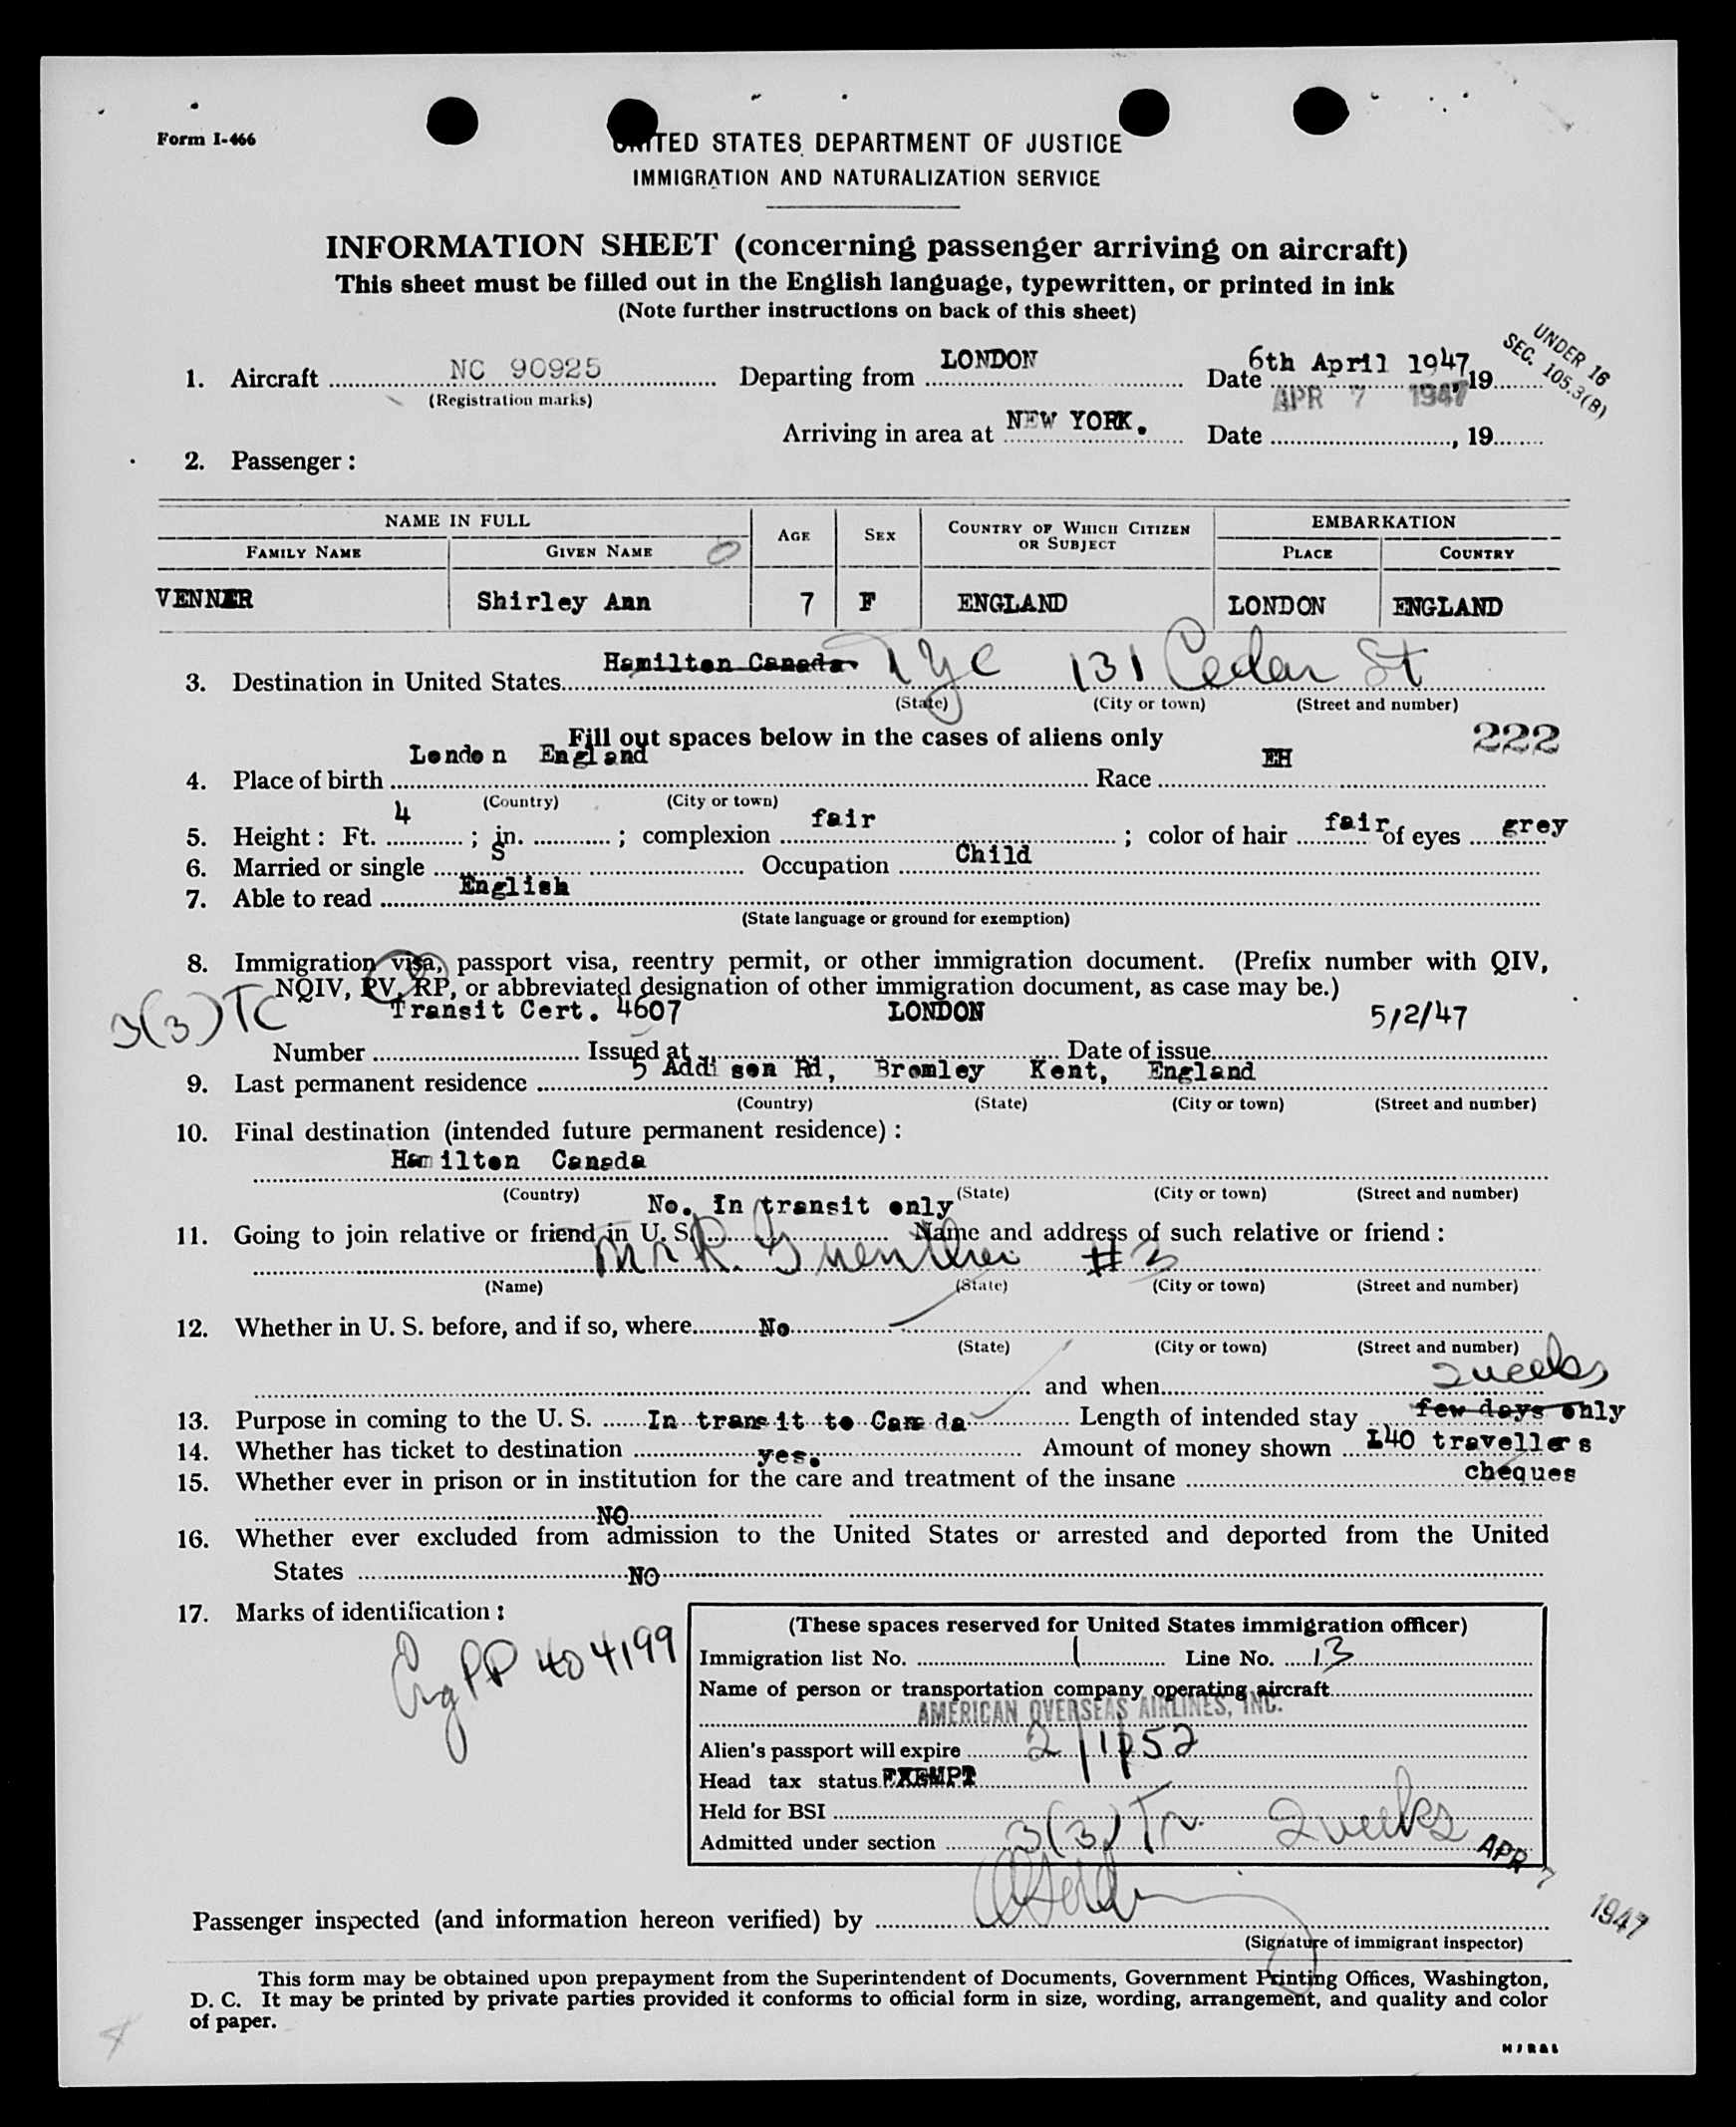 Form I-466
UNITED STATES DEPARTMENT OF JUSTICE
IMMIGRATION AND NATURALIZATION SERVICE
INFORMATION SHEET (concerning passenger arriving on aircraft)
This sheet must be filled out in the English language, typewritten, or printed in ink
(Note further instructions on back of this sheet)
UNDER 16
SEC. 105.3(B)
1. Aircraft NC 90925 Departing from LONDON Date 6th April 1947, 19
(Registration marks) APR 7 1947
Arriving in area at NEW YORK. Date , 19
2. Passenger:
NAME IN FULL AGE SEX COUNTRY OF WHICH CITIZEN OR SUBJECT EMBARKATION
FAMILY NAME GIVEN NAME PLACE COUNTRY
VENNER Shirley Ann 7 F ENGLAND LONDON ENGLAND
3. Destination in United States Hamilton Canada. 131 Cedar St
(State) (City or town) (Street and number)
Fill out spaces below in the cases of aliens only 222
4. Place of birth London England Race EH
(Country) (City or town)
5. Height: Ft. 4 ; in. ; complexion fair ; color of hair fair of eyes grey
6. Married or single S Occupation Child
7. Able to read English
(State language or ground for exemption)
8. Immigration visa, passport visa, reentry permit, or other immigration document. (Prefix number with QIV,
NQIV, PV, RP, or abbreviated designation of other immigration document, as case may be.)
3(3) TC Transit Cert. 4607 LONDON 5/2/47
Number Issued at Date of issue
9. Last permanent residence 5 Addison Rd, Bromley Kent, England
(Country) (State) (City or town) (Street and number)
10. Final destination (intended future permanent residence):
Hamilton Canada
(Country) (State) (City or town) (Street and number)
No. In transit only
11. Going to join relative or friend in U. S. Name and address of such relative or friend:
Mr R. #3
(Name) (State) (City or town) (Street and number)
12. Whether in U. S. before, and if so, where No
(State) (City or town) (Street and number)
and when 2 weeks
13. Purpose in coming to the U. S. In transit to Canada Length of intended stay few days only
14. Whether has ticket to destination yes. Amount of money shown £40 travellers
15. Whether ever in prison or in institution for the care and treatment of the insane cheques
NO
16. Whether ever excluded from admission to the United States or arrested and deported from the United
States NO
17. Marks of identification:
Eng PP 404199
(These spaces reserved for United States immigration officer)
Immigration list No. 1 Line No. 13
Name of person or transportation company operating aircraft
AMERICAN OVERSEAS AIRLINES, INC.
Alien's passport will expire 2/1/52
Head tax status EXEMPT
Held for BSI
Admitted under section 3(3) Tr. 2 weeks
APR 7 1947
Passenger inspected (and information hereon verified) by
(Signature of immigrant inspector)
This form may be obtained upon prepayment from the Superintendent of Documents, Government Printing Offices, Washington,
D. C. It may be printed by private parties provided it conforms to official form in size, wording, arrangement, and quality and color
of paper.